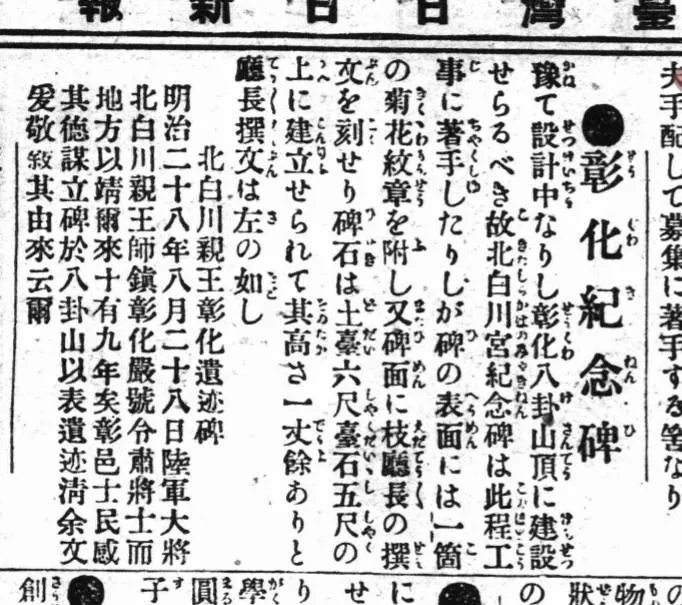 臺灣日日新報
夫手配して募集に著手する筈なり
●彰化紀念碑
豫て設計中なりし彰化八卦山頂に建設
せらるべき故北白川宮紀念碑は此程工
事に著手したりしが碑の表面には一箇
の菊花紋章を附し又碑面に枝廳長の撰
文を刻せり碑石は土臺六尺臺石五尺の
上に建立せられて其高さ一丈餘ありと
廳長撰文は左の如し
北白川親王彰化遺迹碑
明治二十八年八月二十八日陸軍大將
北白川親王師鎮彰化嚴號令肅將士而
地方以靖爾來十有九年矣彰邑士民感
其德謀立碑於八卦山以表遺迹淸余文
爰敬敍其由來云爾